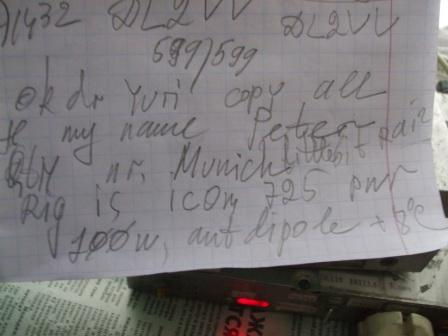 1432 DL2VV DL2VV
599/599
ok dr Yuri copy all
my name Peter
nr. Munich littlebit rain
Rig is icom 725 pwr
100w, ant dipole + 8°C